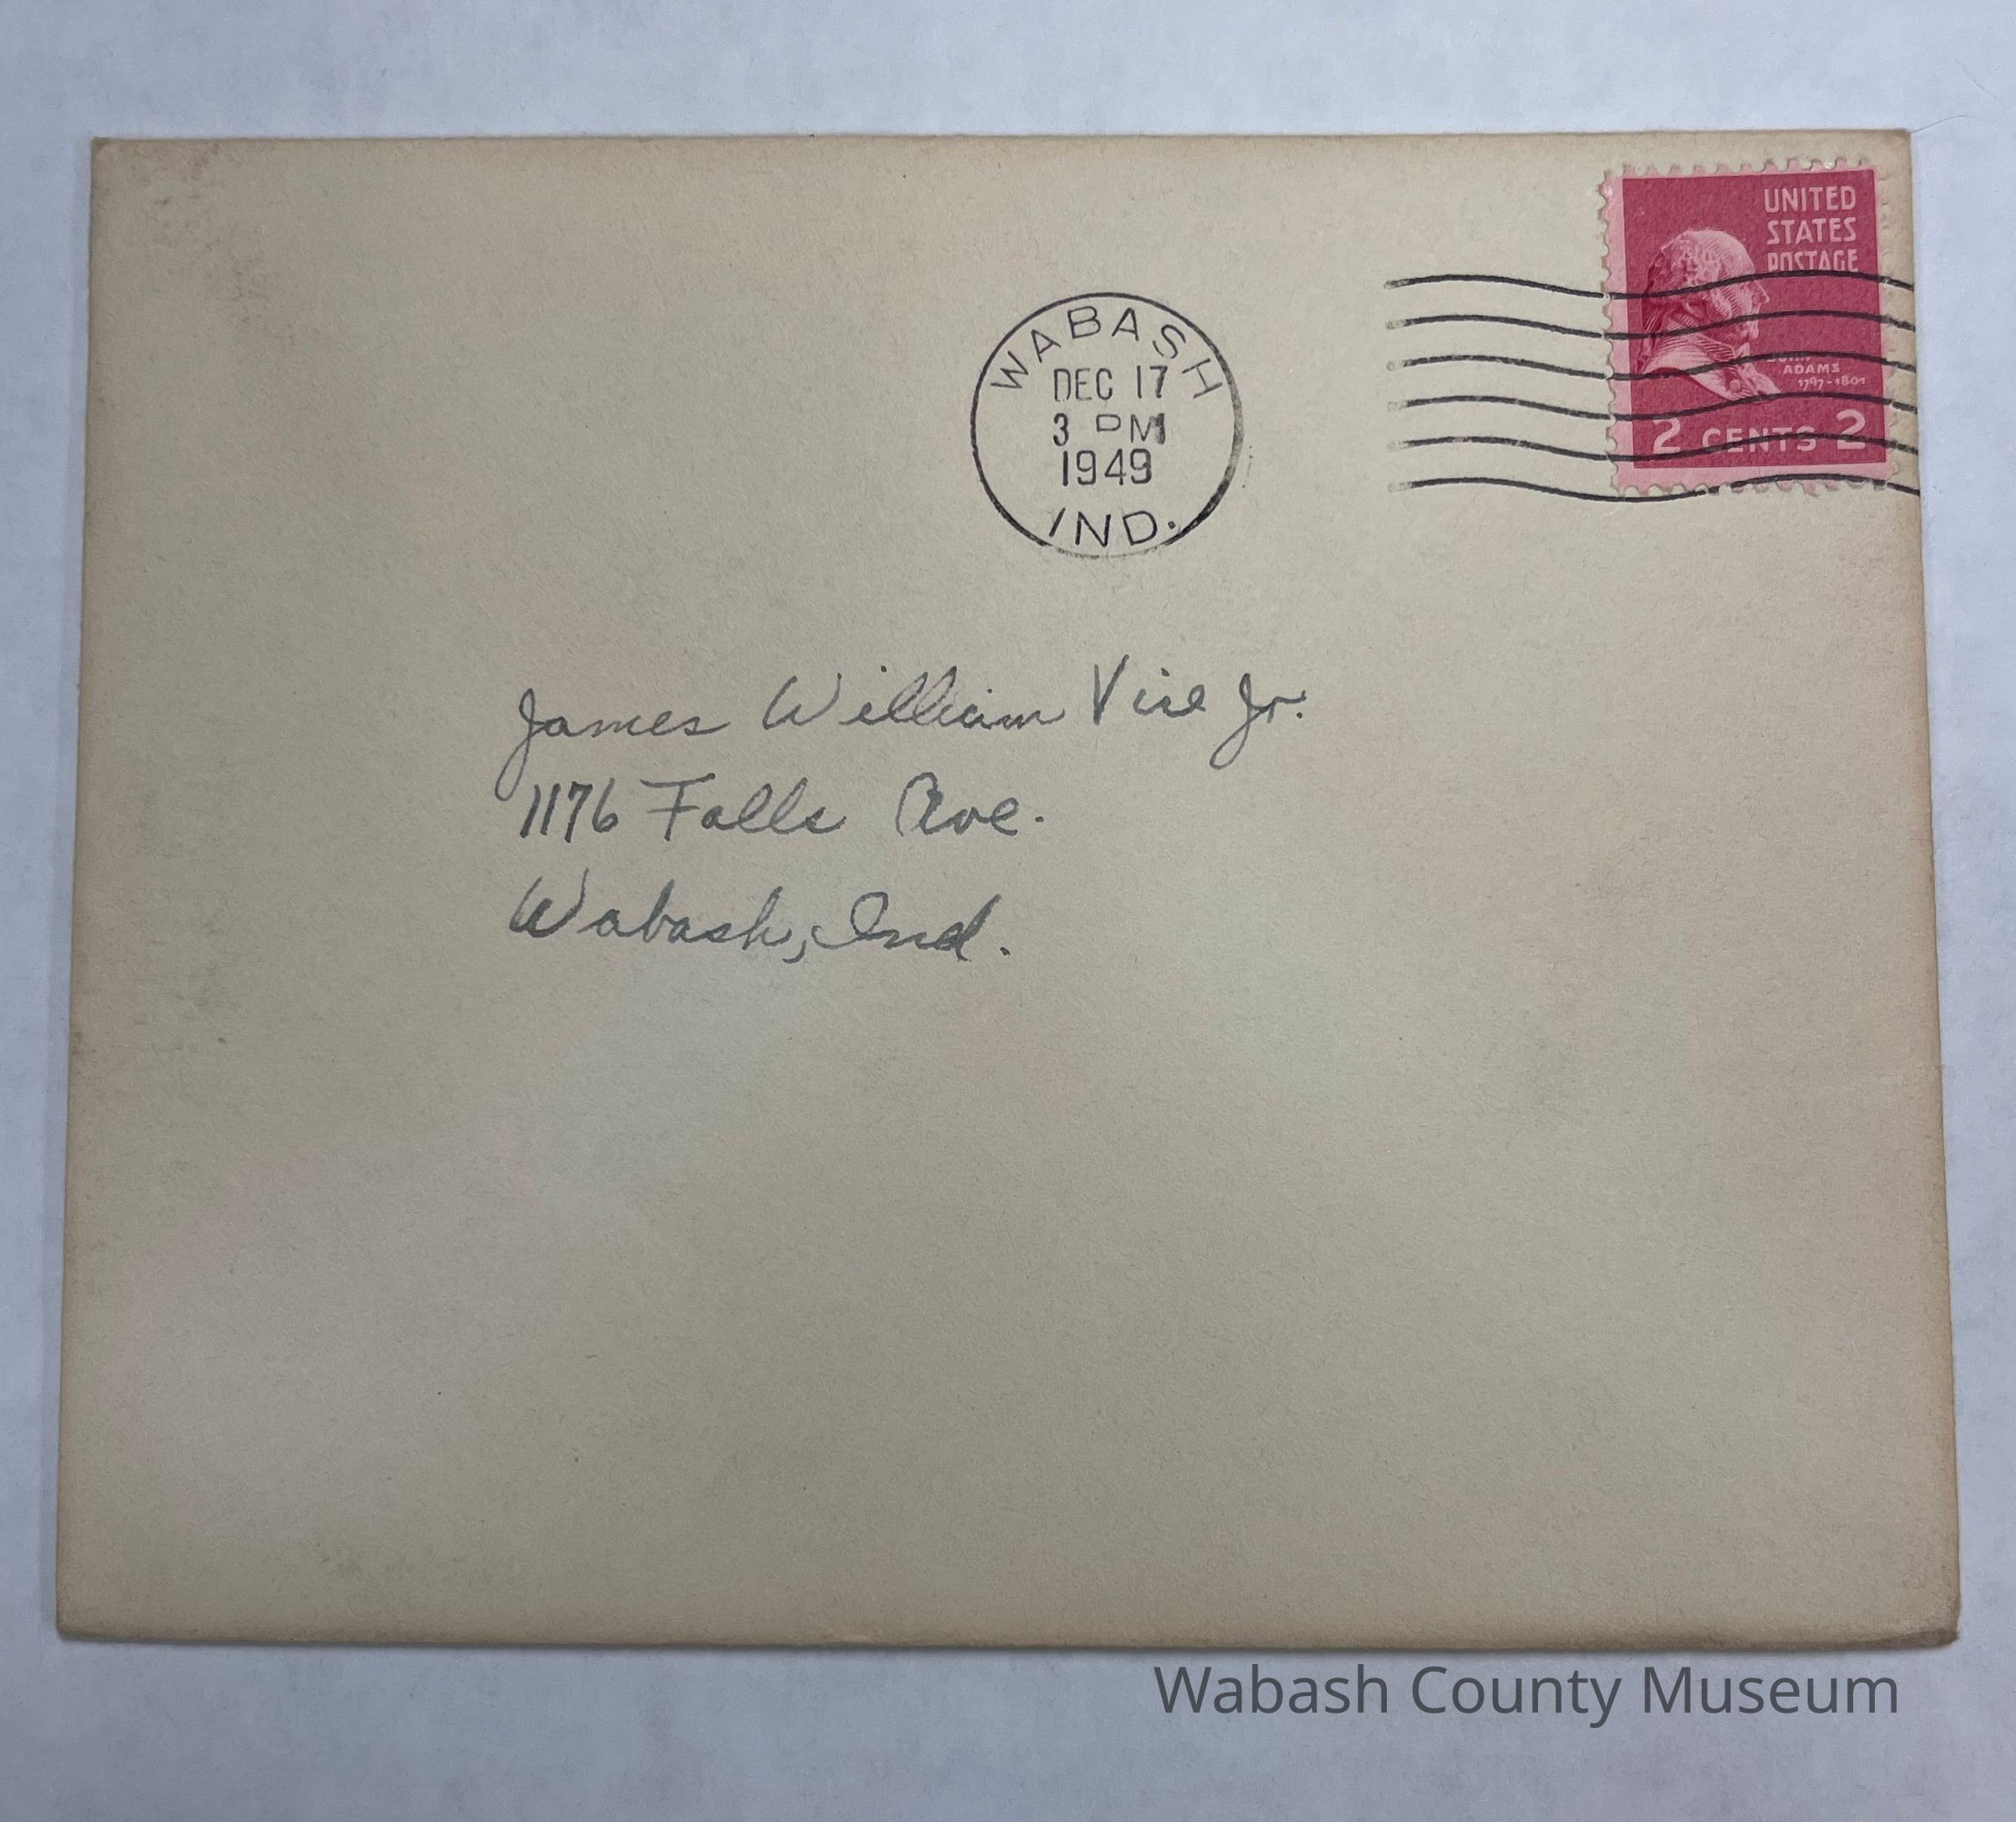 UNITED
STATES
POSTAGE
JOHN
ADAMS
1797-1801
2 CENTS 2
WABASH
DEC 17
3 PM
1949
IND.
James William Vise Jr.
1176 Falls Ave.
Wabash, Ind.
Wabash County Museum